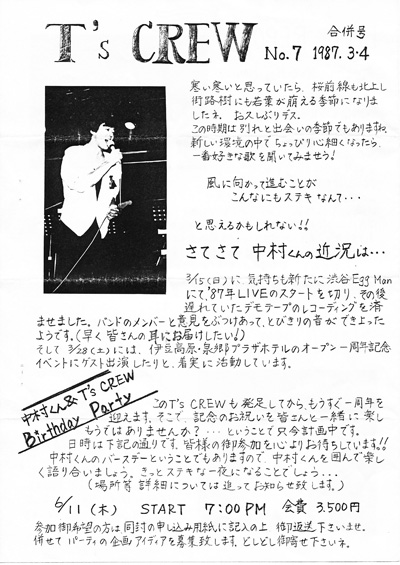 T's CREW
合併号
No.7 1987.3・4
寒い寒いと思っていたら、桜前線も北上し
街路樹にも若葉が萌える季節になりま
したネ。お久しぶりデス。
この時期は別れと出会いの季節でもありますね。
新しい環境の中でちょっぴり心細くなったら、
一番好きな歌を聞いてみませう!
風に向かって進むことが
こんなにもステキなんて・・・
と思えるかもしれない!!
さてさて 中村くんの近況は・・・
3/15(日)に、気持ちも新たに渋谷Egg Man
にて、'87年LIVEのスタートを切り、その後
遅れていたデモテープのレコーディングを済
ませました。バンドのメンバーと意見をぶつけあって、とびきりの音ができよった
ようです。(早く皆さんの耳にお届けしたい!)
そして 3/28(土)には、伊豆高原・泉郷プラザホテルのオープン一周年記念
イベントにゲスト出演したりと、着実に活動しています。
中村くん& T's CREW
Birthday Party
このT's CREWも発足してから、もうすぐ一周年を
迎えます。そこで、記念のお祝いを皆さんと一緒に楽し
もうではありませんか?・・・ということで只今計画中です。
日時は下記の通りです。皆様の御参加を心よりお待ちしています!!
中村くんのバースデーということでもありますので、中村くんを囲んで楽し
く語り合いましょう。きっとステキな一夜になることでしょう・・・
(場所等詳細については追ってお知らせ致します。)
6/11(木) START 7:00 PM 会費 3,500円
参加御希望の方は同封の申し込み用紙に記入の上 御返送下さいませ。
併せて パーティの企画・アイディアを募集致します。どしどし御寄せ下さいネ。